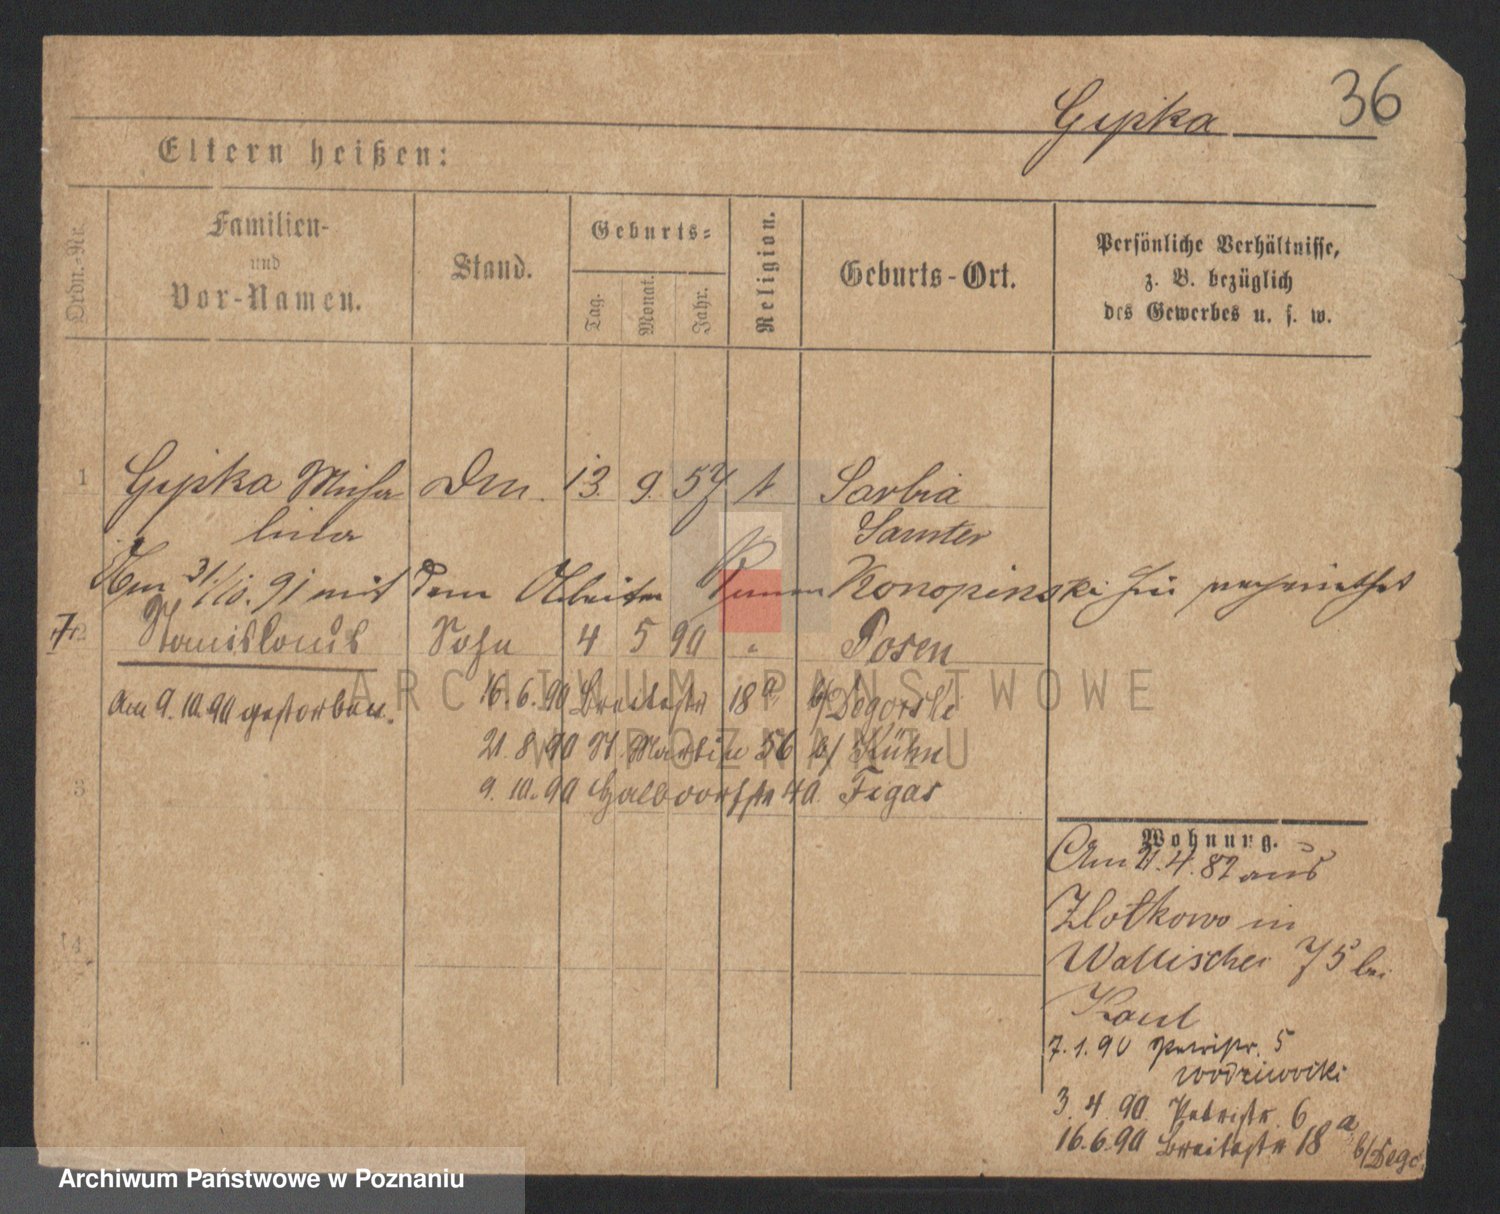 36
Gypka
Eltern heißen:
Ordn.-Nr.
Familien-
und
Vor-Namen.
Stand.
Geburts-
Tag.
Monat.
Jahr.
Religion.
Geburts-Ort.
Persönliche Verhältnisse,
z. B. bezüglich
des Gewerbes u. s. w.
1 Gypka Micha 13. 9. 57 Sarbia
lina Samter
Am 31/10. 91 mit dem Arbeiter Konopinski
2 Stanislaus Sohn 4 5 90 " Posen
am 9.10.90 gestorben.
16.6.90 Breitestr 18a b/Degorski
21.8.90 St. Martin 56 b/ Kühn
3
9.10.90 Halbdorfstr 40 Figas
Wohnung.
Am 21.4.82 aus
Zlotkowo in
4
Wallischei 75 bei
Kaul
7.1.90 Petristr. 5
3.4.90 Petristr. 6
16.6.90 Breitestr 18a b/Dego
ARCHIWUM PAŃSTWOWE
W POZNANIU
Archiwum Państwowe w Poznaniu